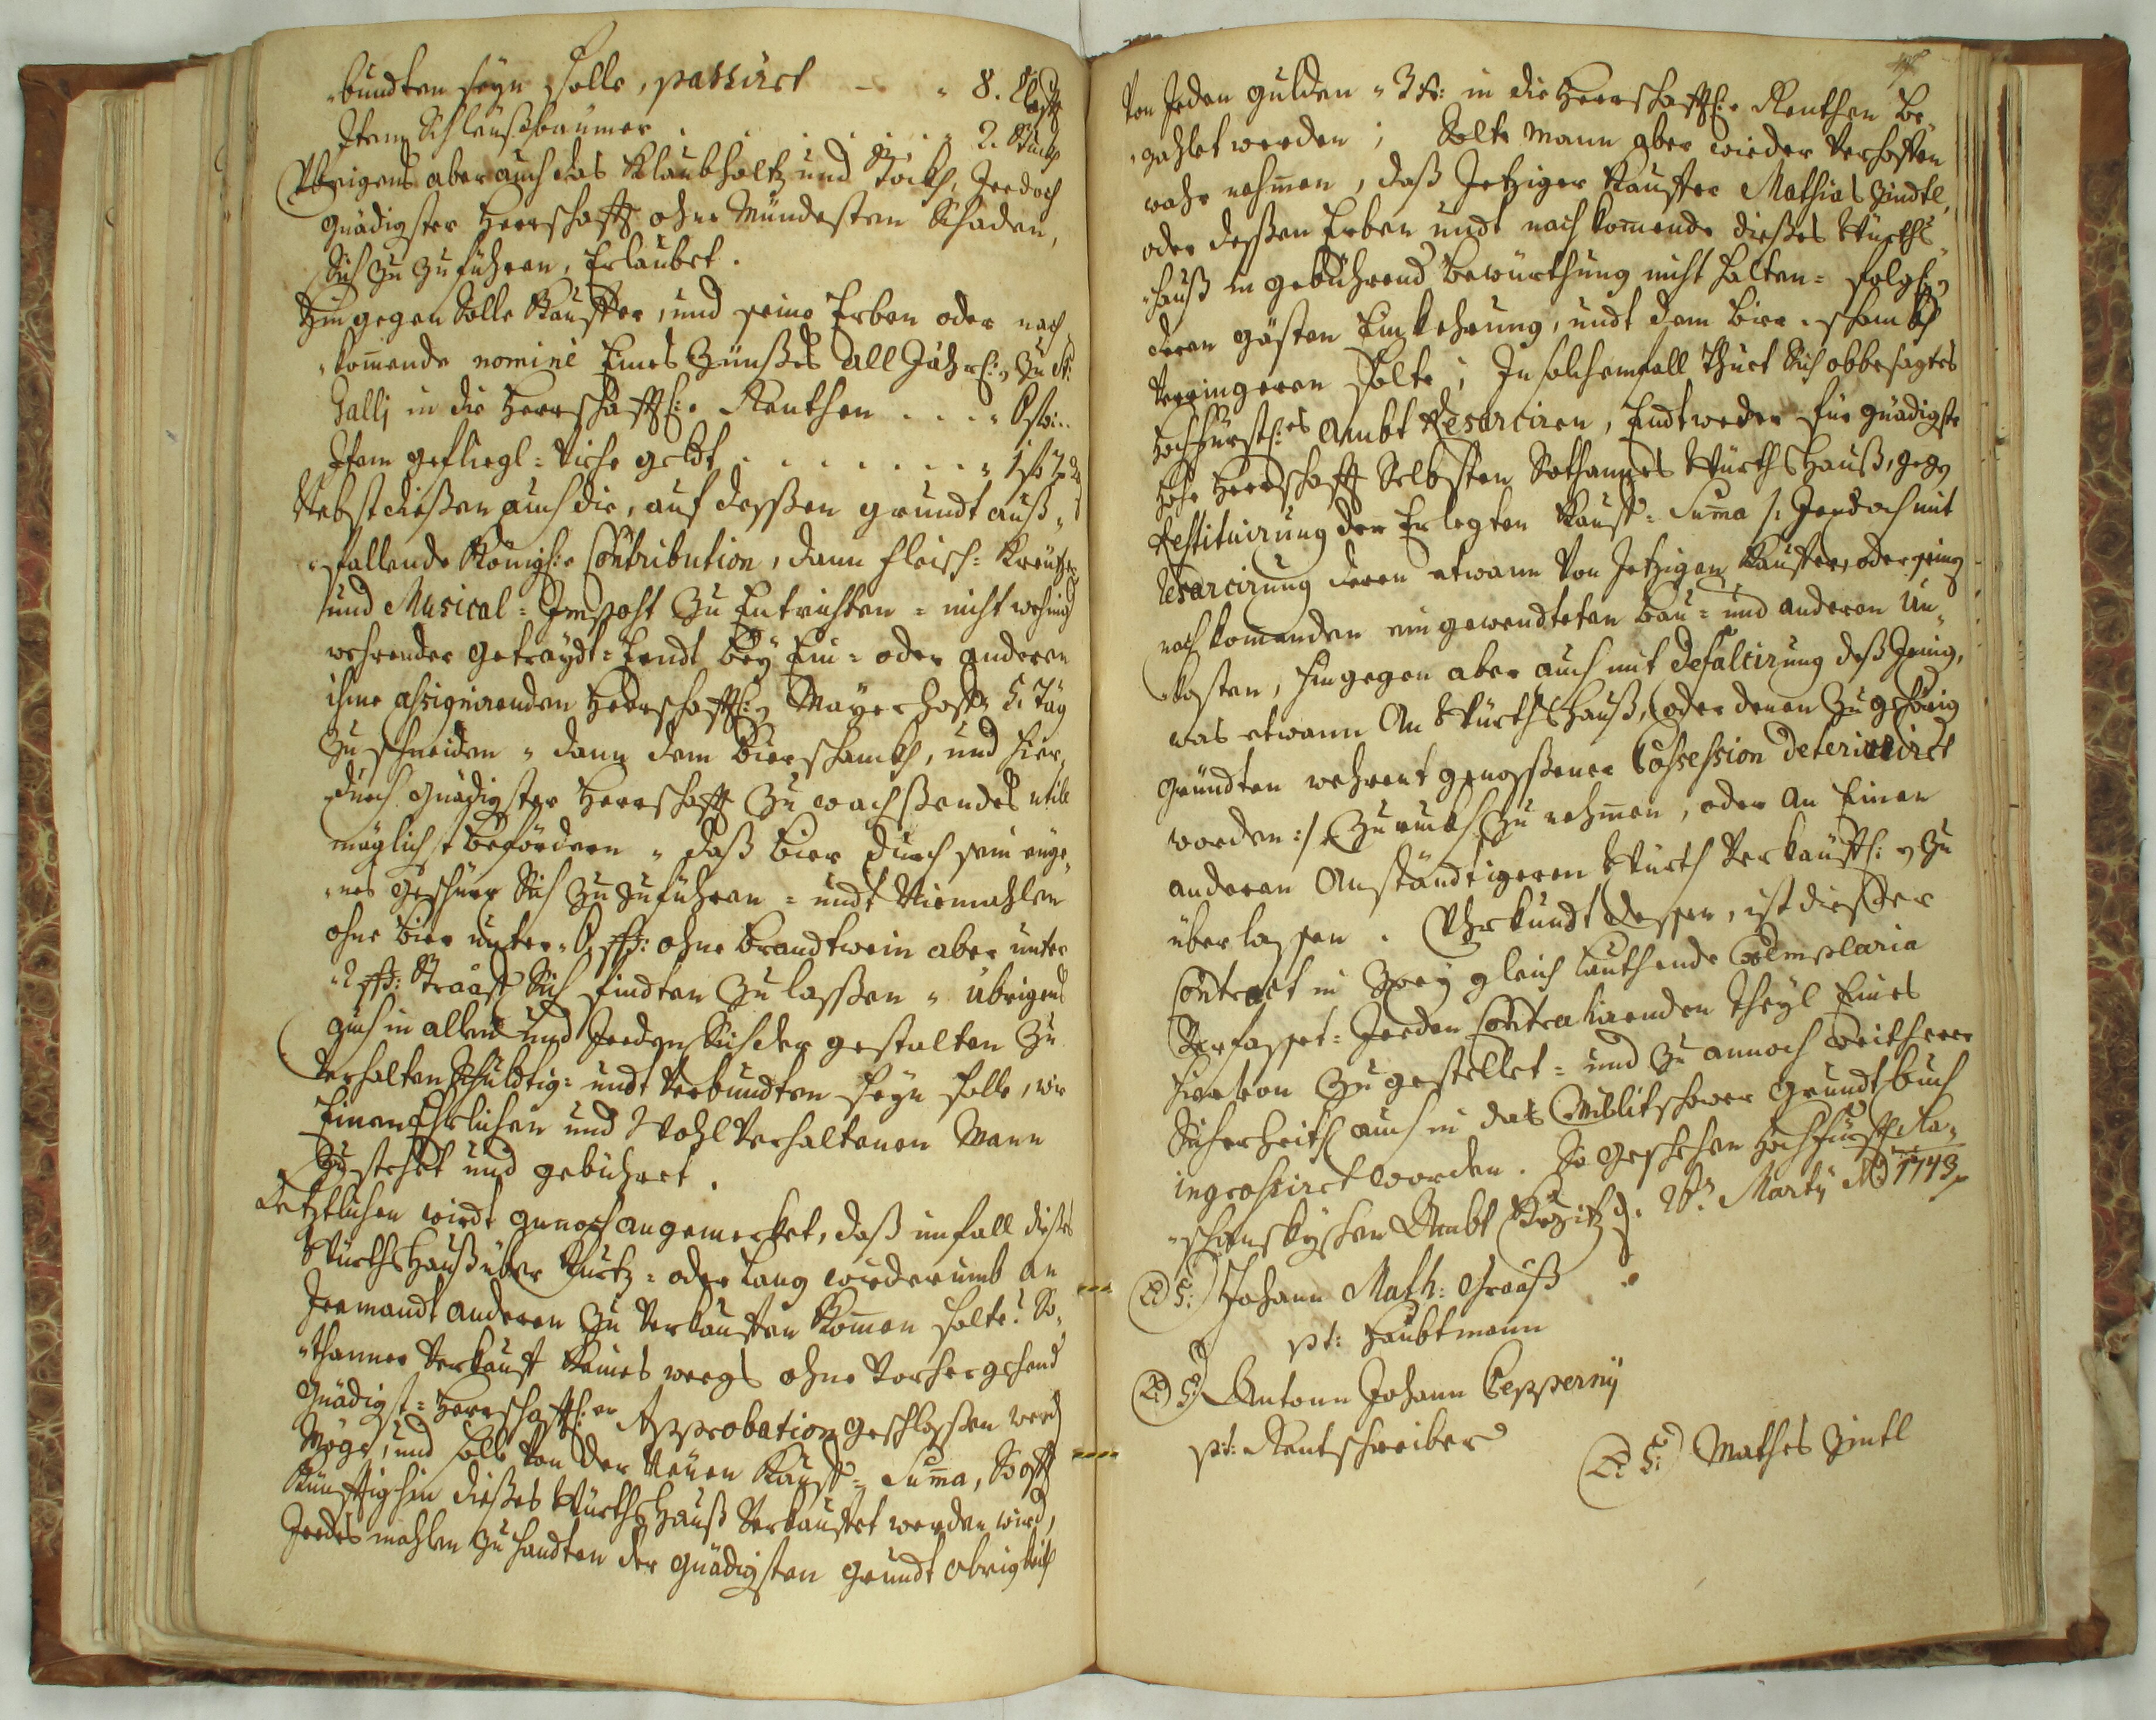 bundten seyn solle, passiret - „ 8. Claffter
Item Schleußbaumer . . . . . „ 2. Stuckh
Übrigens aber auch das Klaubholtz und Stöckh, Jedoch
gnädigster Herrschafft ohne Mündesten Schaden,
Sich zu zuführen, Erlaubet.
Hin gegen Solle Kauffer, und seine Erben oder nach„
„komende nomine Eines Zünßes all Jährl: zu St:
Galli in die Herrschafftl: Renthen . . . .
Item gefliegl-
Nebst dießen auch die, auf dessen grundt auß„
„fallende Königl: Contribution, dann Fleisch= Kreutzer
und Musical= Impost zu Entrichten = nicht weniger
wehrender getraydt= Erndt bey Ein= oder anderen
ihme assignirenden Herrschafftl: Mayerhoff 5. Täg
zu schneiden „ dann dem Bierschankh, und hier„
durch gnädigster Herrschafft zu wachssendes utile
möglichst befördern „ daß bier durch sein aige„
„nes geschürr Sich zu zuführen = undt Niemahlen
ohne bier unter ohne brandtwein aber unter
„2 Sich findten zu lassen „ übrigens
auch in allem und Jeden Sich der gestalten zu
Verhalten Schuldtig= undt Verbundten seyn solle, wie
Einem Ehrlichen und Wohl Verhaltenen Mann
zu stehet und gebühret.
Letztlichen wirdt annoch angemerket, daß im fall dießes
Würthshauß über kurtz= oder lang wiederumb an
Jemandt anderen zu Verkauffen komen solte? So„
„thanner Verkauff keines weegs ohne Vorhergehend
gnädigst= Herrschafftl:er Approbation geschlossen werden
möge, und solle von der Neuen Kauff= Suma, So offt
künfftighin dießes Würthshauß Verkauffet werden wird,
Jedes mahlen zu handten der gnädigsten grundt obrigkeith
Von Jeden gulden „ 3 kr: in die Herrschafftl: Renthen be„
„zahlet werden; Solte mann aber wieder Verhoffen
wahr nehmen, daß Jetziger Kauffer Mathias Zindtl,
oder dessen Erben undt nach komende dießes Würths„
„hauß in gebührend bewürthung nicht halten= folgl:
deren gästen Einkehrung, undt dem bier „schankh
Verringeren solte; In solchemfall Thuet Sich obbesagtes
Hochfürstl:es Ambt Reserviren, Endtweder für gnädigste
Hohe Herrschafft Selbsten Sothannes Würthshauß, gegen
Restituirung der Erlegten Kauff= Suma /: Jedoch mit
Resarcirung deren etwann Von Jetzigen Kauffer, oder seinen
nach komenden eingewendteten bau= und anderen Un„
„kosten, hin gegen aber auch mit defalcirung deß Jenigen,
was etwann An Würthshauß, oder denen zugehörig
gründten wehrent genossener Possession deterioriret
worden :/ zu ruckh zu nehmen, oder an Einen
anderen Anständtigeren Würth Verkaüffl: zu
überlassen. Uhrkundt dessen, ist dießer
Contract in Zwey gleich lauthende Exemplaria
Verfasset= Jeden Contrahirenden Theyl Eines
hievon zu gestellet= und zu annoch weitherer
Sicherheith auch in das Miblitschower grundtbuch
ingrossiret worden. So geschehen Hochfürstl:
Ambt Martij Ao 1743.
(L: S:) Johann Math: Grauß
pt: Haubtmann
(L: S:) Antonn Johann Pepperny
pt: Rentschreiber
(L: S:) Mathes Zintl